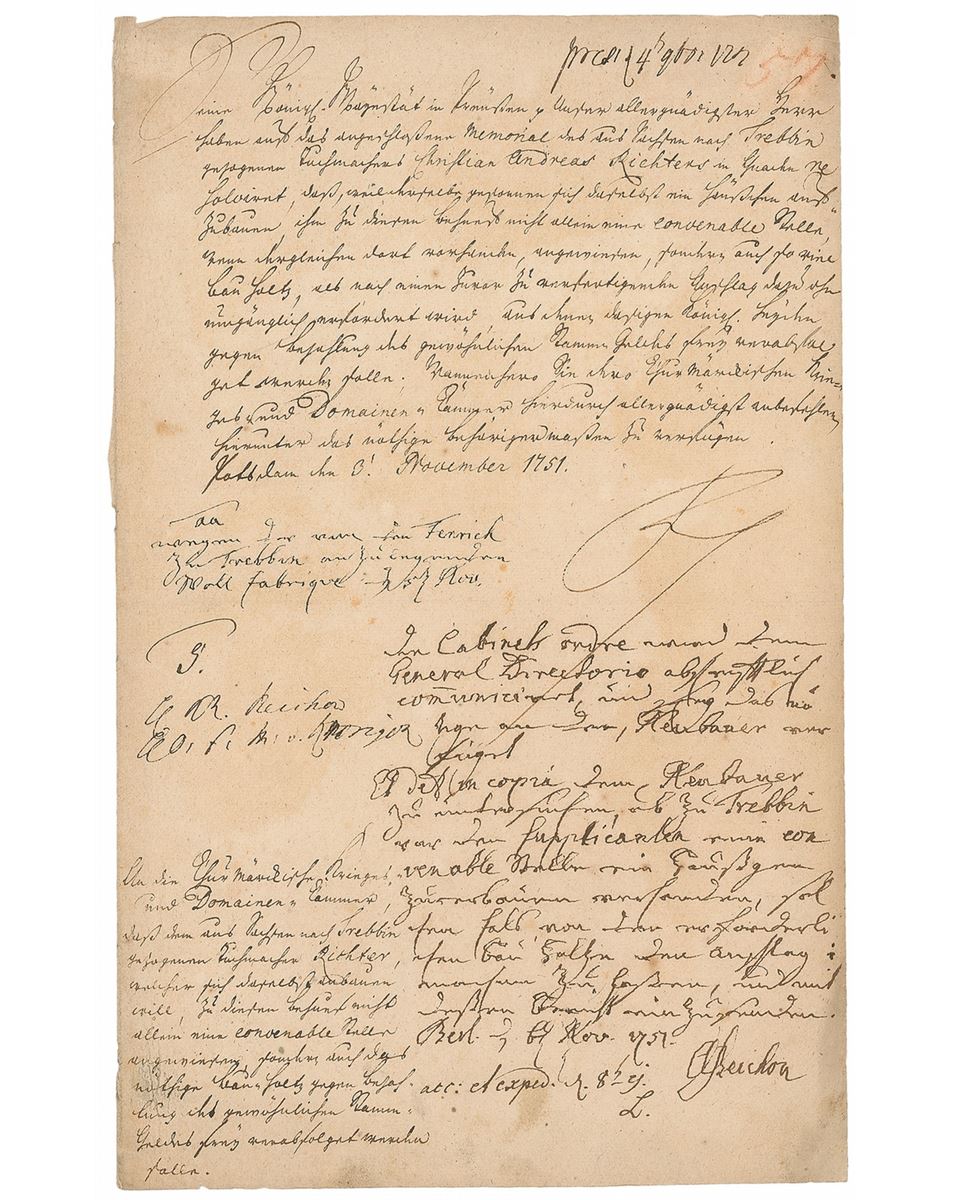 praes. d 4t 9br. 1751
57.
Seine Königl. Majestät in Preußen p Unser allergnädigster Herr
haben auf das angeschloßene Memorial des aus Sachsen nach Trebbin
gezogenen Tuchmachers Christian Andreas Richters in Gnaden re
solviret, daß, weil derselbe gesonnen sich daselbst ein Häußchen auff
zubauen, ihm zu diesen behueff nicht allein eine convenable Stelle,
wenn dergleichen dort vorhanden, angewiesen, sondern auch so viel
Bau Holtz, als nach einen zuvor zu verfertigenden Anschlag dazu ohn
umgänglich erfordert wird aus denen dasigen Königl. Heyden
gegen bezahlung des gewöhnlichen Stamm Geldes frey verabfol
get werden solle. Wannenhero Sie dero Churmärckischen Krie
ges und Domainen Cammer hierdurch allergnädigst anbefehlen,
hierunter das nöthige behörigermaßen zu verfügen.
Potsdam den 3t November 1751.
wegen der von den Ferrich
zu Trebbin anzulegenden
Woll Fabrique d 5t Nov.
der Cabinets ordre wird dem
General Directorio abschrifftlich
communiciret, und das nö
thige an den Neubauer ver
füget
S.
H KR. Reichon
in copia dem Neubauer
zu untersuchen, ob zu Trebbin
vor den Supplicanten eine con
venable Stelle ein Haußgen
zu erbauen vorhanden, sol
chen fals von den erforderli
chen bau Holtze den Anschlag
machen zu laßen, und mit
deßen Bericht einzusenden.
Berl. d 6t Nov. 1751.
Reichon
acc: et exped. d. 8t ej.
L.
An die Churmärckische Krieges
und Domainen Cammer,
daß dem aus Sachsen nach Trebbin
gezogenen Tuchmacher Richter,
welcher sich daselbst anbauen
will, zu diesen behueff nicht
allein eine convenable Stelle
angewiesen, sondern auch das
nöthige Bau Holtz gegen bezah
lung des gewöhnlichen Stamm
Geldes frey verabfolget werden
solle.